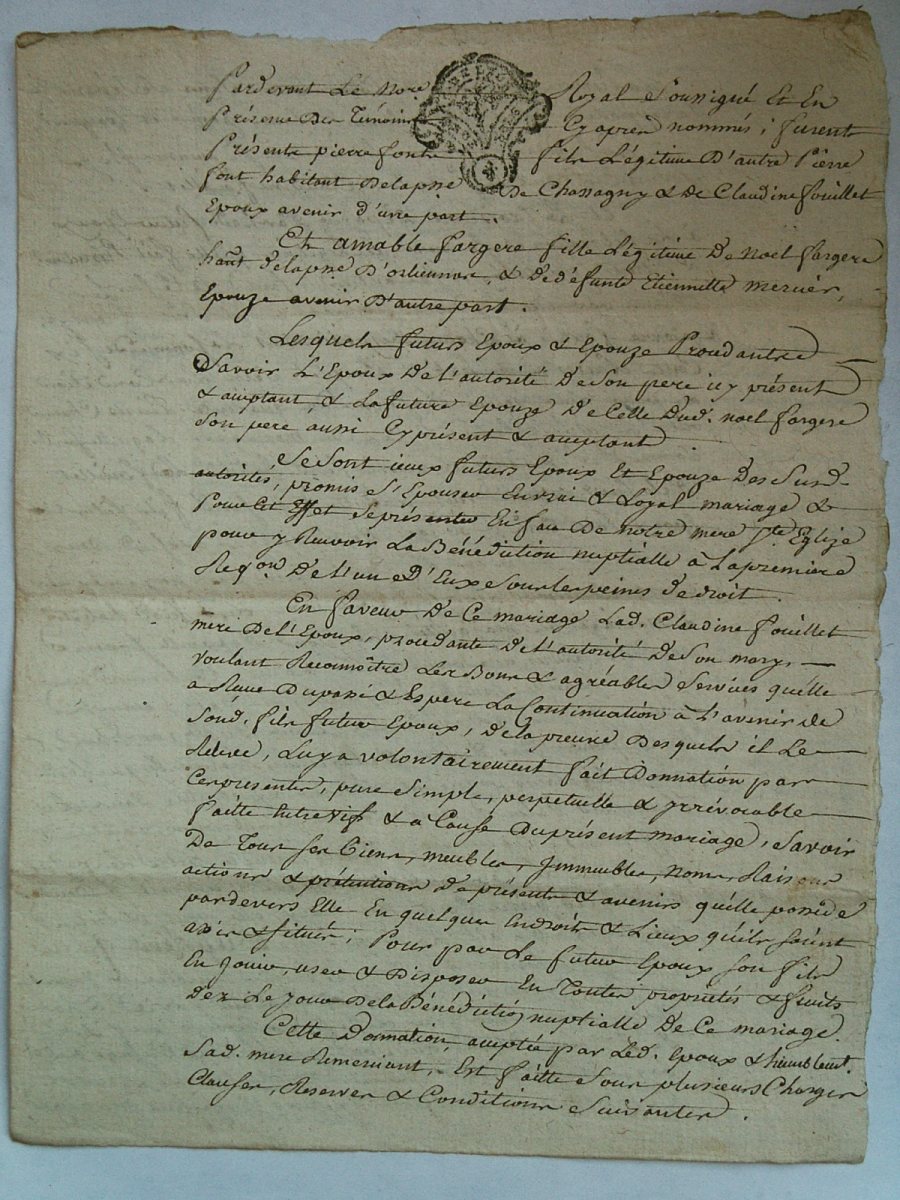 Pardevant Le Nore Royal Soussigné Et En
Présence Des Témoins Cy après nommés, furent
Présents pierre font fils Légitime D'autre Pierre
font habitant Delapsse De Chassagny & De Claudine fouillet
Epoux avenir d'une part.
Et amable fargere fille Légitime De Noël fargere
hañt delapsse D'orliennas, & de défunte Etiennette mercier,
Epouze avenir D'autre part.
Lesquels futurs Epoux & Epouze Procédantes
Savoir L'Epoux De l'autorité De Son pere icy présent
& acceptant, & La future Epouze De Celle Dud. noël fargere
Son pere aussi Cy présent & acceptant.
Se Sont iceux futurs Epoux Et Epouze Des Susd.
autorités, promis S'Epouser En vrai & Loyal mariage &
Pour Cet Effet Se présenter En face De notre mere Ste Eglize
pour y Recevoir La Bénédiction nuptialle à La premiere
Reqon. De l'un D'Eux Sous les peines de droit.
En faveur De Ce mariage Lad. Claudine fouillet
mere De l'Epoux, procédante De l'autorité De Son mary,
voulant Reconnoître Les Bons & agréables Services qu'elle
a Reçue Dupassé & Espere La Continuation à L'avenir de
Soud. fils futur Epoux, de la preuve Desquels il Le
Releve, Luy a volontairement fait Donnation par
Ces presentes, pure Simple, perpetuelle & Irrévocable
faitte Entre vifs & à Cause Du présent mariage, Savoir
De Tous ses Biens, meubles, Immeubles, noms, Raisons
actions & prétentions De présents & avenirs qu'elle possède
pardevers Elle En quelques Endroits & Lieux qu'ils soient
assis & situés; Pour par Le futur Epoux son fils
En Jouir, user & Disposer En Toutes propriétés & fruits
Dez Le Jour De la Bénédiction nuptialle De Ce mariage.
Cette Donnation acceptée par Led. Epoux & humblemt.
Sad. mere Remerciant, Est faitte Sous plusieurs Charges
Clauses, Reserves & Conditions Suivantes.